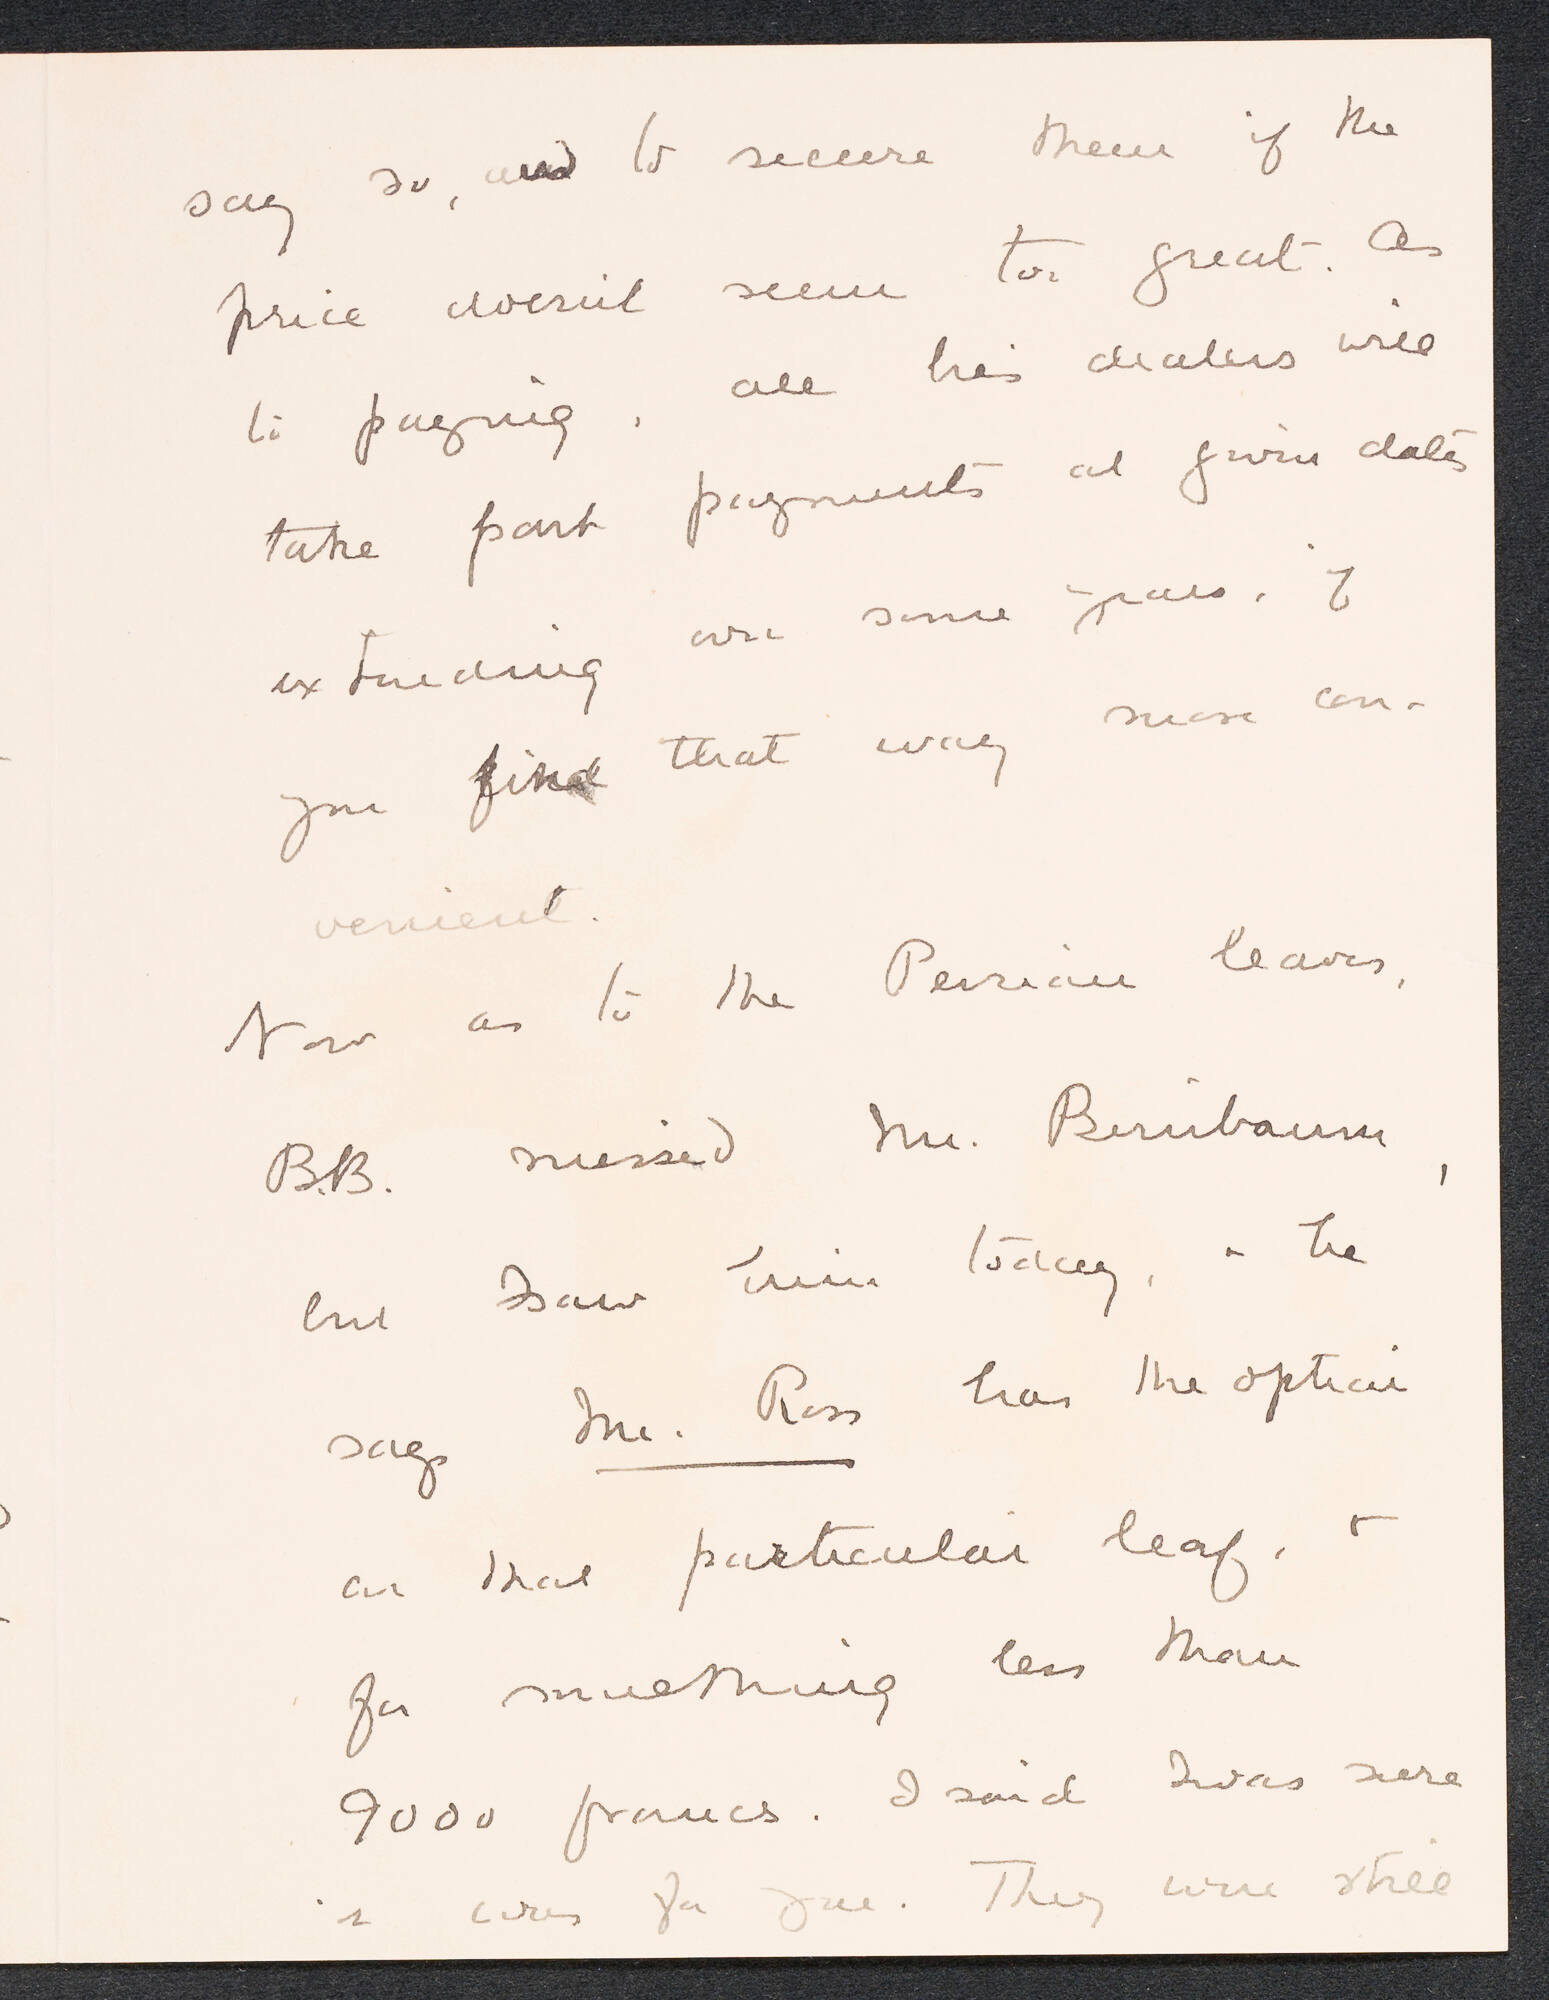 say so, and to secure them if the
price doesn't seem too great. As
to paying, all his dealers will
take part payments at given dates
extending over some years, if
you find that way more con-
venient.
Now as to the Persian leaves,
B.B. missed Mr. Birnbaum,
but I saw him today, & he
says Mr. Ross has the option
on that particular leaf, &
for something less than
9000 francs. I said I was sure
it was for you. They were still